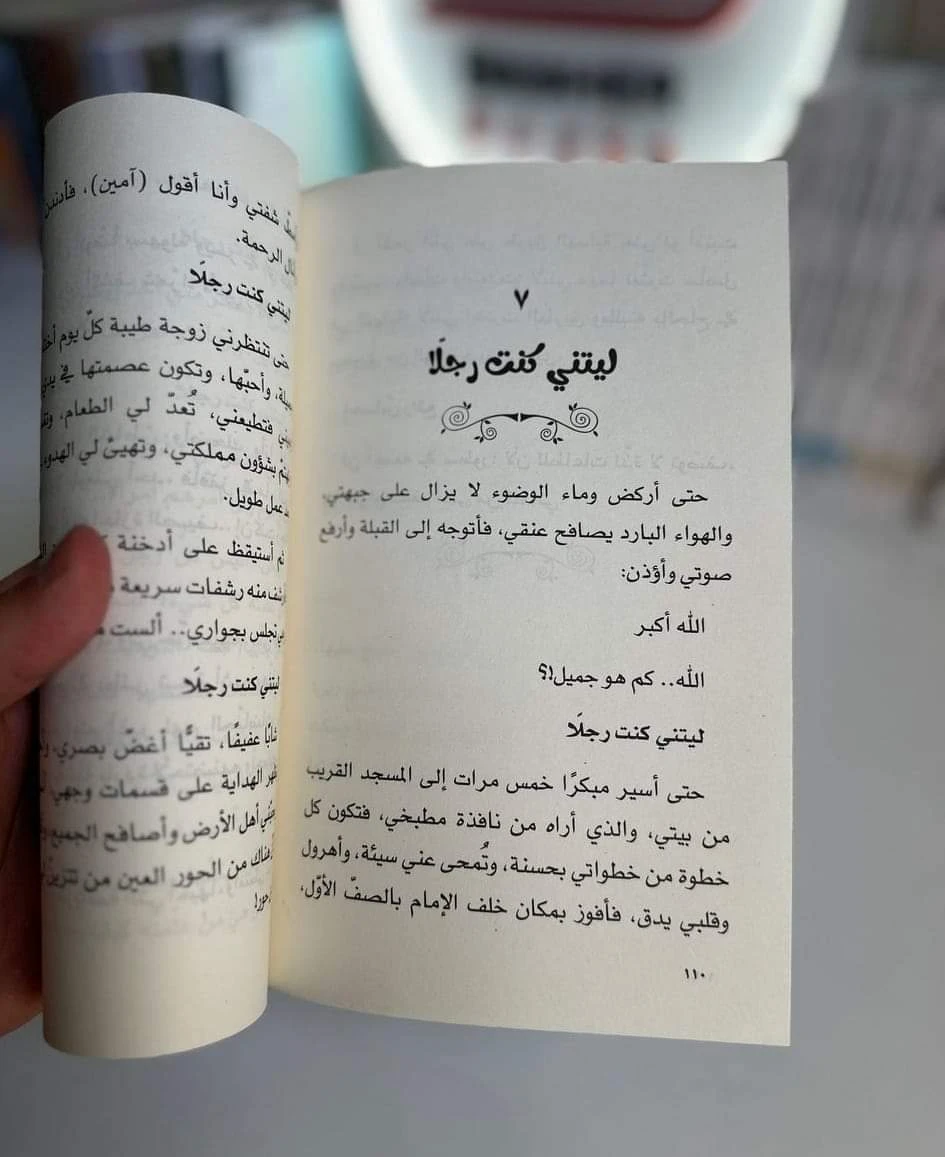 ٧
ليتني كنت رجلًا
حتى أركض وماء الوضوء لا يزال على جبهتي،
والهواء البارد يصافح عنقي، فأتوجه إلى القبلة وأرفع
صوتي وأؤذن:
الله أكبر
الله.. كم هو جميل!؟
ليتني كنت رجلًا
حتى أسير مبكرًا خمس مرات إلى المسجد القريب
من بيتي، والذي أراه من نافذة مطبخي، فتكون كل
خطوة من خطواتي بحسنة، وتُمحى عني سيئة، وأهرول
وقلبي يدق، فأفوز بمكان خلف الإمام بالصفّ الأوّل،
١١٠
شفتي وأنا أقول (آمين)،
الرحمة.
ليتني كنت رجلًا
حتى تنتظرني زوجة طيبة كلّ يوم
وأحبّها، وتكون عصمتها في
فتطيعني، تُعدّ لي الطعام،
بشؤون مملكتي، وتهيئ لي الهدوء
عمل طويل.
ثم أستيقظ على أدخنة
منه رشفات سريعة
تجلس بجواري.. ألست
ليتني كنت رجلًا
شابًا عفيفًا، تقيًّا أغضّ بصري،
الهداية على قسمات وجهي
أهل الأرض وأصافح الجميع
هناك من الحور العين من تتزين